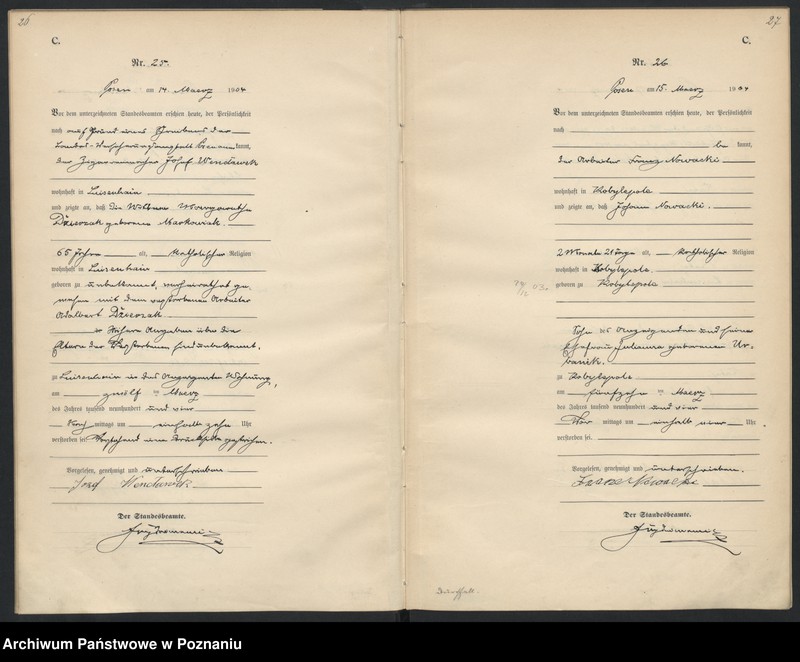 26
C.
Nr. 25.
Posen am 14. Maerz 1904
Vor dem unterzeichneten Standesbeamten erschien heute, der Persönlichkeit
nach auf Grund eines Schreibens der
Landes-Versicherungsanstalt Posen kannt,
der Josef Wendawek
wohnhaft in Luisenhain
und zeigte an, daß die Wittwe Margarethe
geborene Markowiak.
65 Jahre alt, katholischer Religion
wohnhaft in Luisenhain
geboren zu unbekannt, verheirathet ge
wesen mit dem verstorbenen Arbeiter
Adalbert
Nähere Angaben über die
Eltern der Verstorbenen sind unbekannt.
zu Luisenhain in des Anzeigenden Wohnung,
am zwölf ten Maerz
des Jahres tausend neunhundert und vier
Nach mittags um einhalb zehn Uhr
verstorben sei. Vorstehend eine Druckzeile gestrichen.
Vorgelesen, genehmigt und unterschrieben
Jozef Wendawek
Der Standesbeamte.
27
C.
Nr. 26
Posen am 15. Maerz 1904
Vor dem unterzeichneten Standesbeamten erschien heute, der Persönlichkeit
nach
be kannt,
der Arbeiter Franz Nowacki
wohnhaft in Kobylepole
und zeigte an, daß Johann Nowacki.
2 Monate 21 Tage alt, katholischer Religion
wohnhaft in Kobylepole
geboren zu Kobylepole
Sohn des Anzeigenden und seiner
Ehefrau Julianna geborenen Ur-
banick.
zu Kobylepole
am fünfzehn ten Maerz
des Jahres tausend neunhundert und vier
Vor mittags um einhalb vier Uhr
verstorben sei.
Vorgelesen, genehmigt und unterschrieben.
Franz Nowacki
Der Standesbeamte.
Archiwum Państwowe w Poznaniu